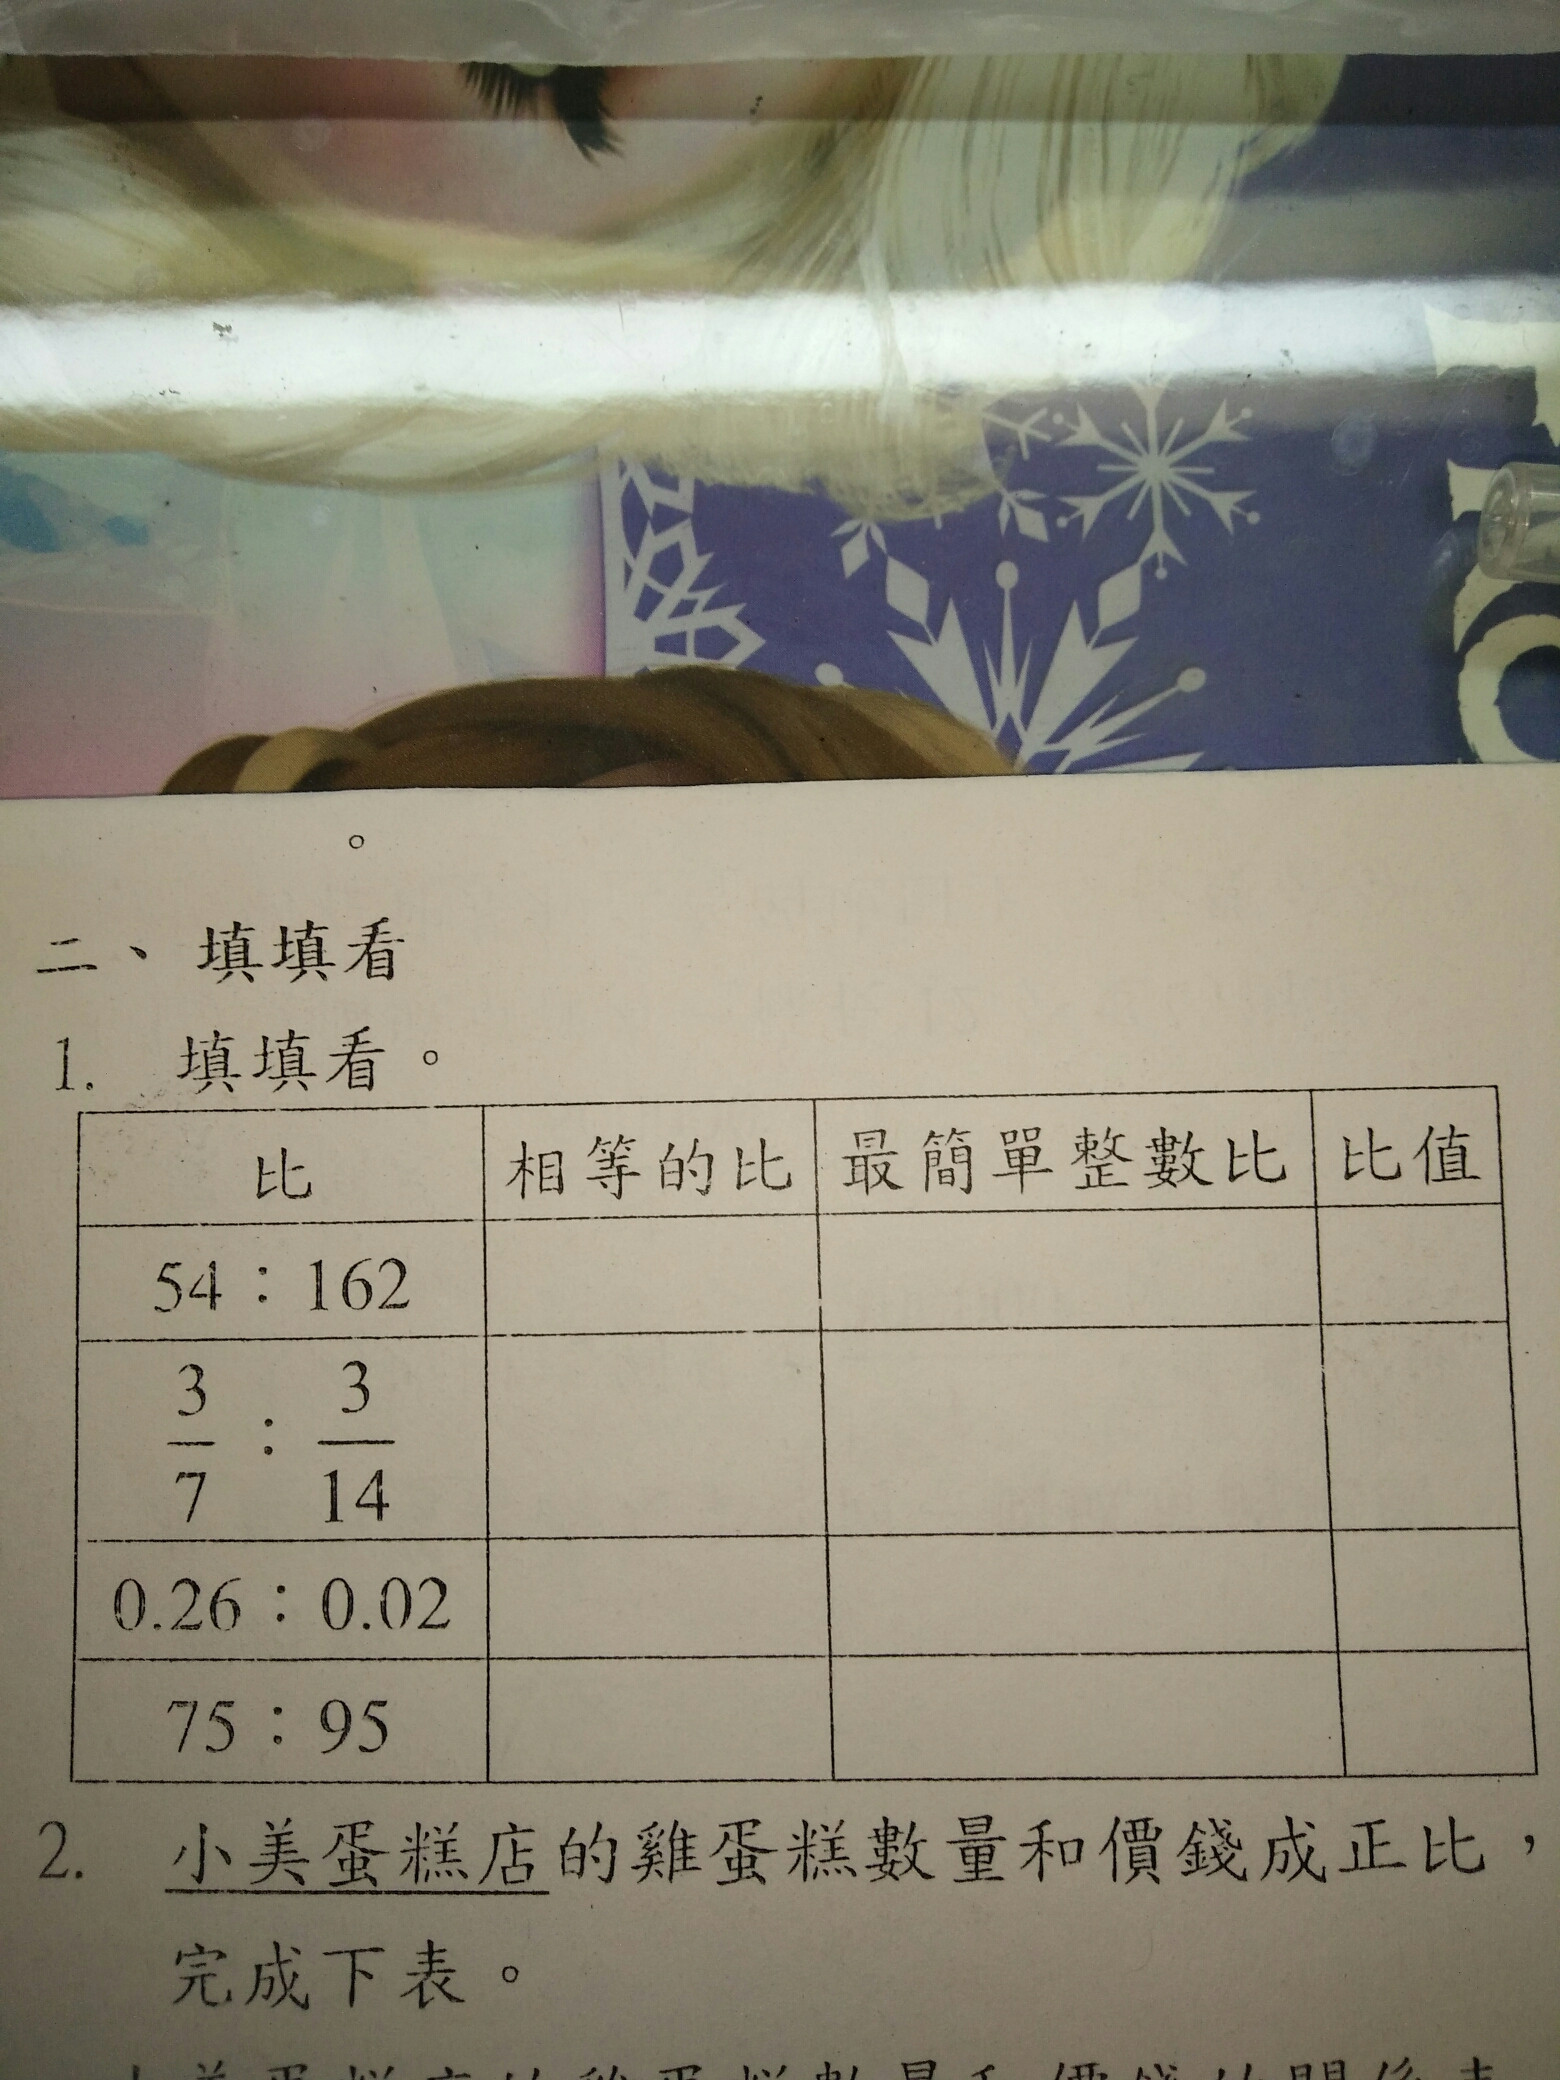 。
二、填填看
1. 填填看。
比 相等的比 最簡單整數比 比值
54：162
3/7 : 3/14
0.26：0.02
75：95
2. 小美蛋糕店的雞蛋糕數量和價錢成正比，
完成下表。